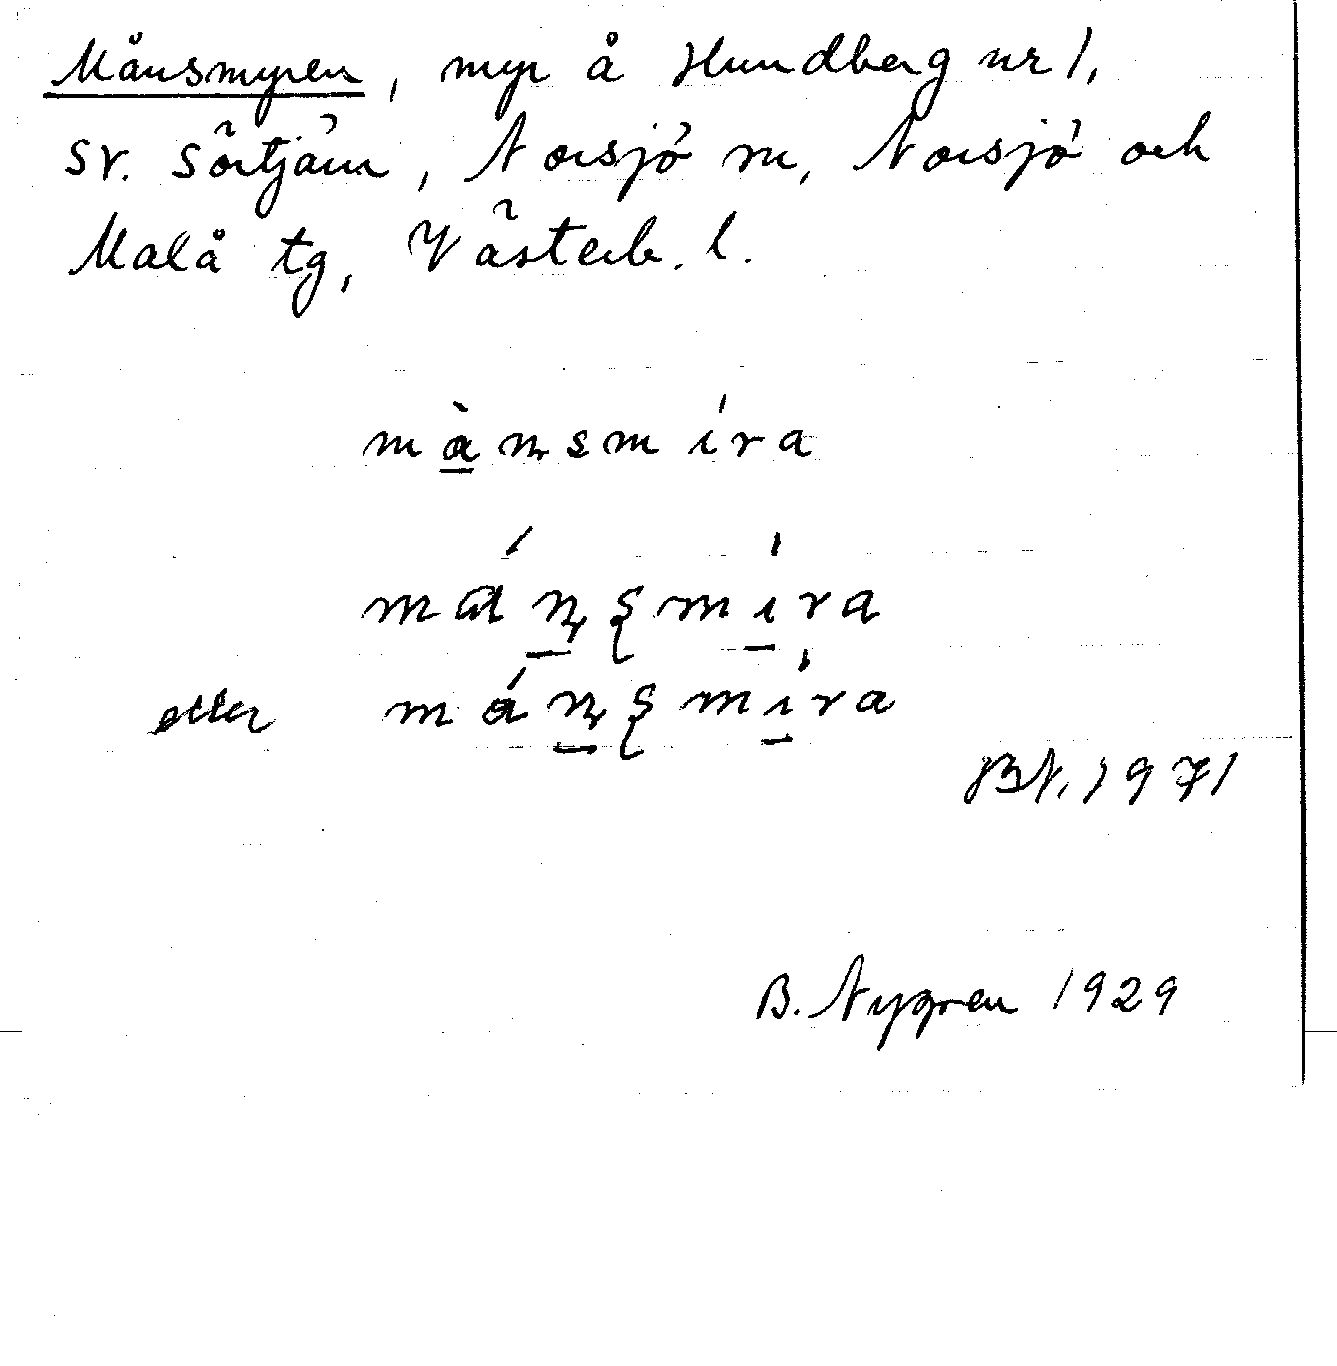 Månsmyren, myr å Hundberg nr 1,
sv. Sörtjärn, Norsjö sn, Norsjö och
Malå tg, Västerb. l.
mànsmíra
mánsmíra
eller mánsmíra
BN. 1971
B. Nygren 1929